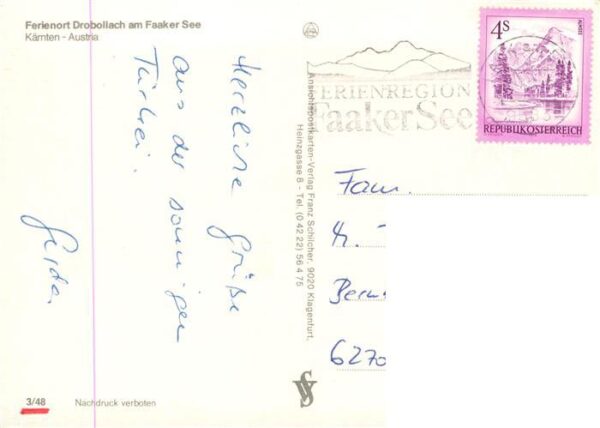 Ferienort Drobollach am Faaker See
Kärnten - Austria
Herzliche Grüße
aus der sonnigen
Türkei.
Gerda
3/48
Nachdruck verboten
Ansichtspostkarten-Verlag Franz Schilcher, 9020 Klagenfurt,
Heinzgasse 8 - Tel. (0 42 22) 56 4 75
FERIENREGION
Faaker See
4S
ALMSEE
REPUBLIK ÖSTERREICH
Fam.
6270